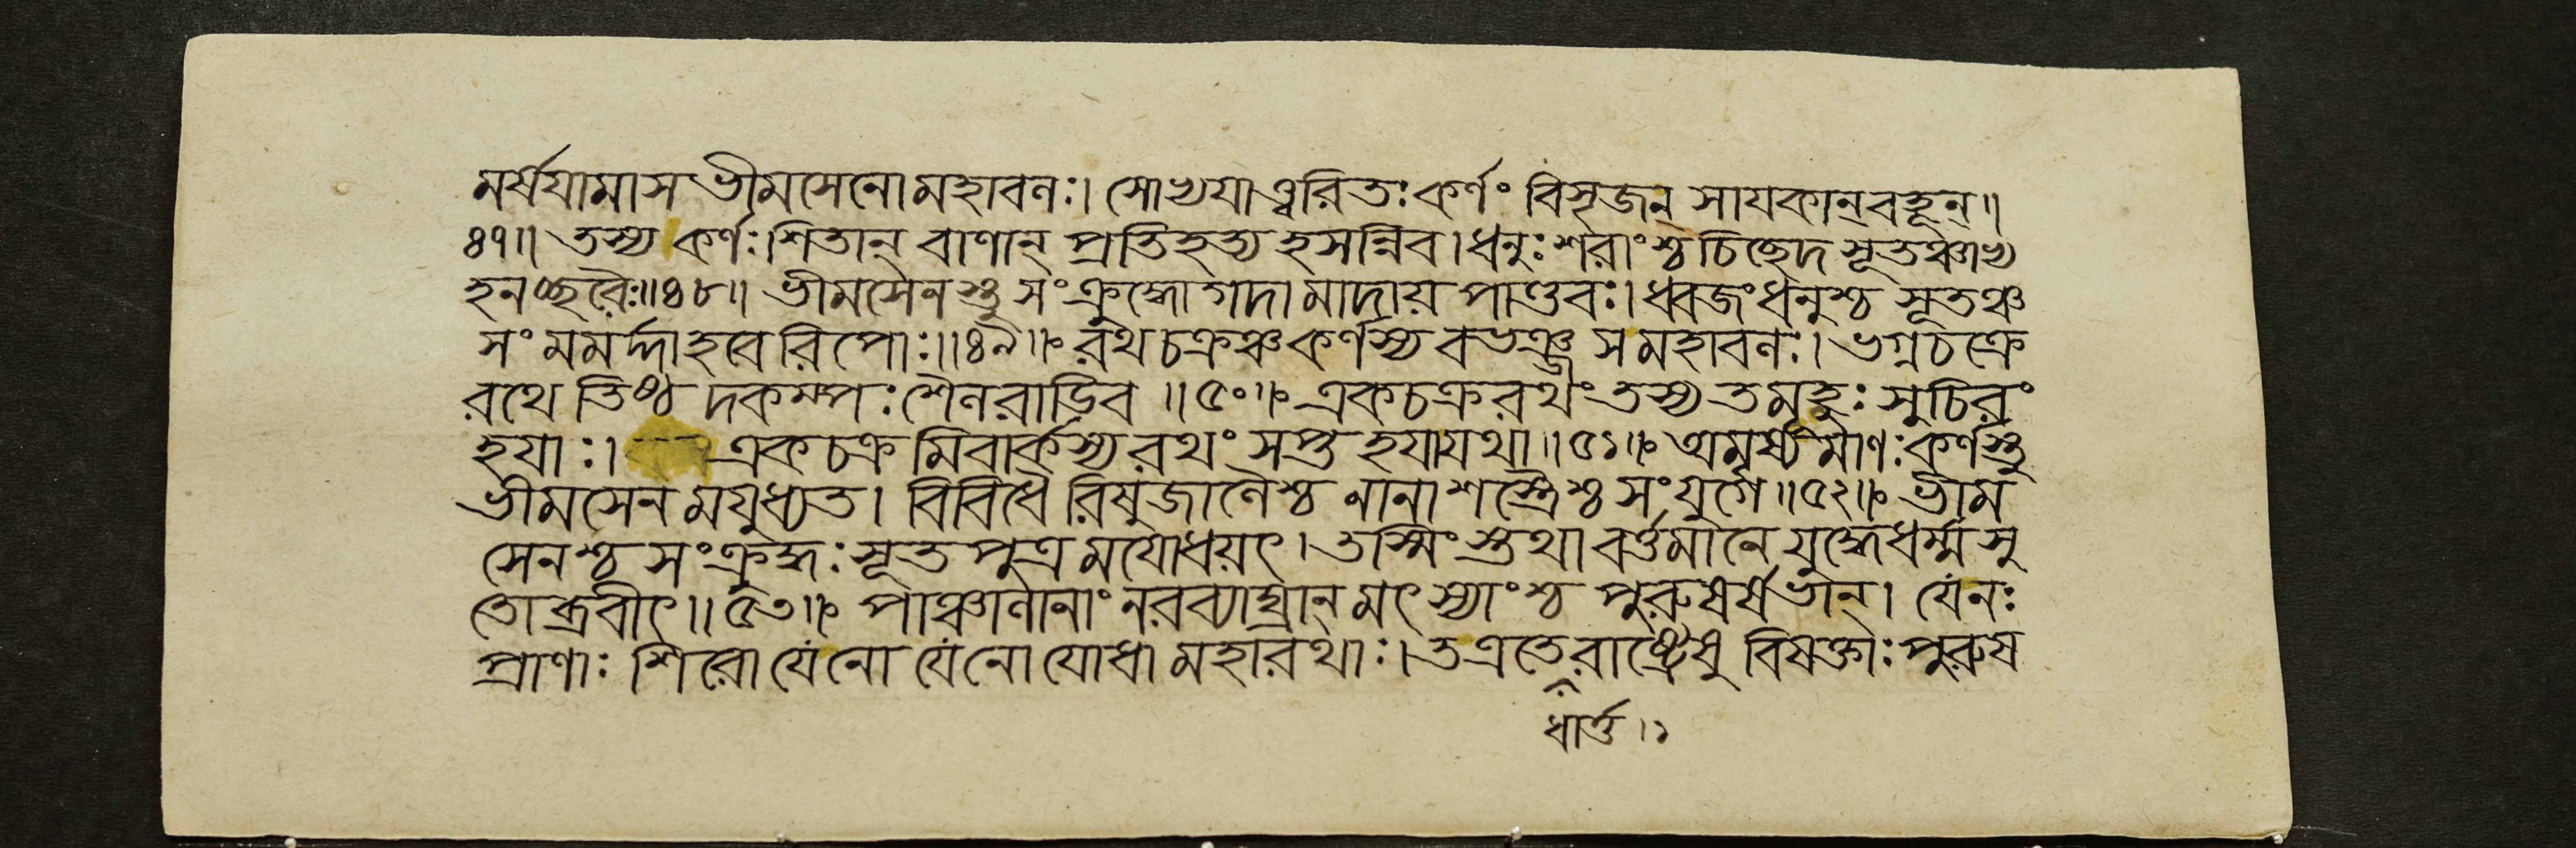 মর্ষযামাস ভীমসেনো মহাবলঃ। সোভ্যযাত্ত্বরিতঃ কর্ণং বিসৃজন্ সাযকান্বহূন্॥
৪৭॥ তস্য কর্ণঃ শিতান্ বাণান্ প্রতিহত্য হসন্নিব। ধনুঃ শরাংশ্চ চিচ্ছেদ সূতঞ্চাভ্য
হনচ্ছরৈঃ॥৪৮॥ ভীমসেনস্তু সংক্রুদ্ধো গদামাদায় পাণ্ডবঃ। ধ্বজং ধনুশ্চ সূতঞ্চ
সংমমর্দ্দাহবে রিপোঃ॥৪৯॥ রথচক্রঞ্চ কর্ণস্য বভঞ্জ স মহাবলঃ। ভগ্নচক্রে
রথে তিষ্ঠদকম্পঃ শৈলরাডিব॥৫০॥ একচক্ররথং তস্য তমূহুঃ সুচিরং
হযাঃ। একচক্রমিবার্কস্য রথং সপ্ত হযা যথা॥৫১॥ অমৃষ্যমাণঃ কর্ণস্তু
ভীমসেনমযুধ্যত। বিবিধৈরিষুজালৈশ্চ নানাশস্ত্রৈশ্চ সংযুগে॥৫২॥ ভীম
সেনশ্চ সংক্রুদ্ধঃ সূতপুত্রমযোধয়ৎ। তস্মিংস্তথা বর্ত্তমানে যুদ্ধে ধর্ম্মসু
তোব্রবীৎ॥৫৩॥ পাঞ্চালানাং নরব্যাঘ্রান্ মৎস্যাংশ্চ পুরুষর্ষভান্। যে নঃ
প্রাণাঃ শিরো যে নো যে নো যোধা মহারথাঃ। ত এতে রাষ্ট্রেষু বিষক্তাঃ পুরুষ
ধার্ত্ত।১